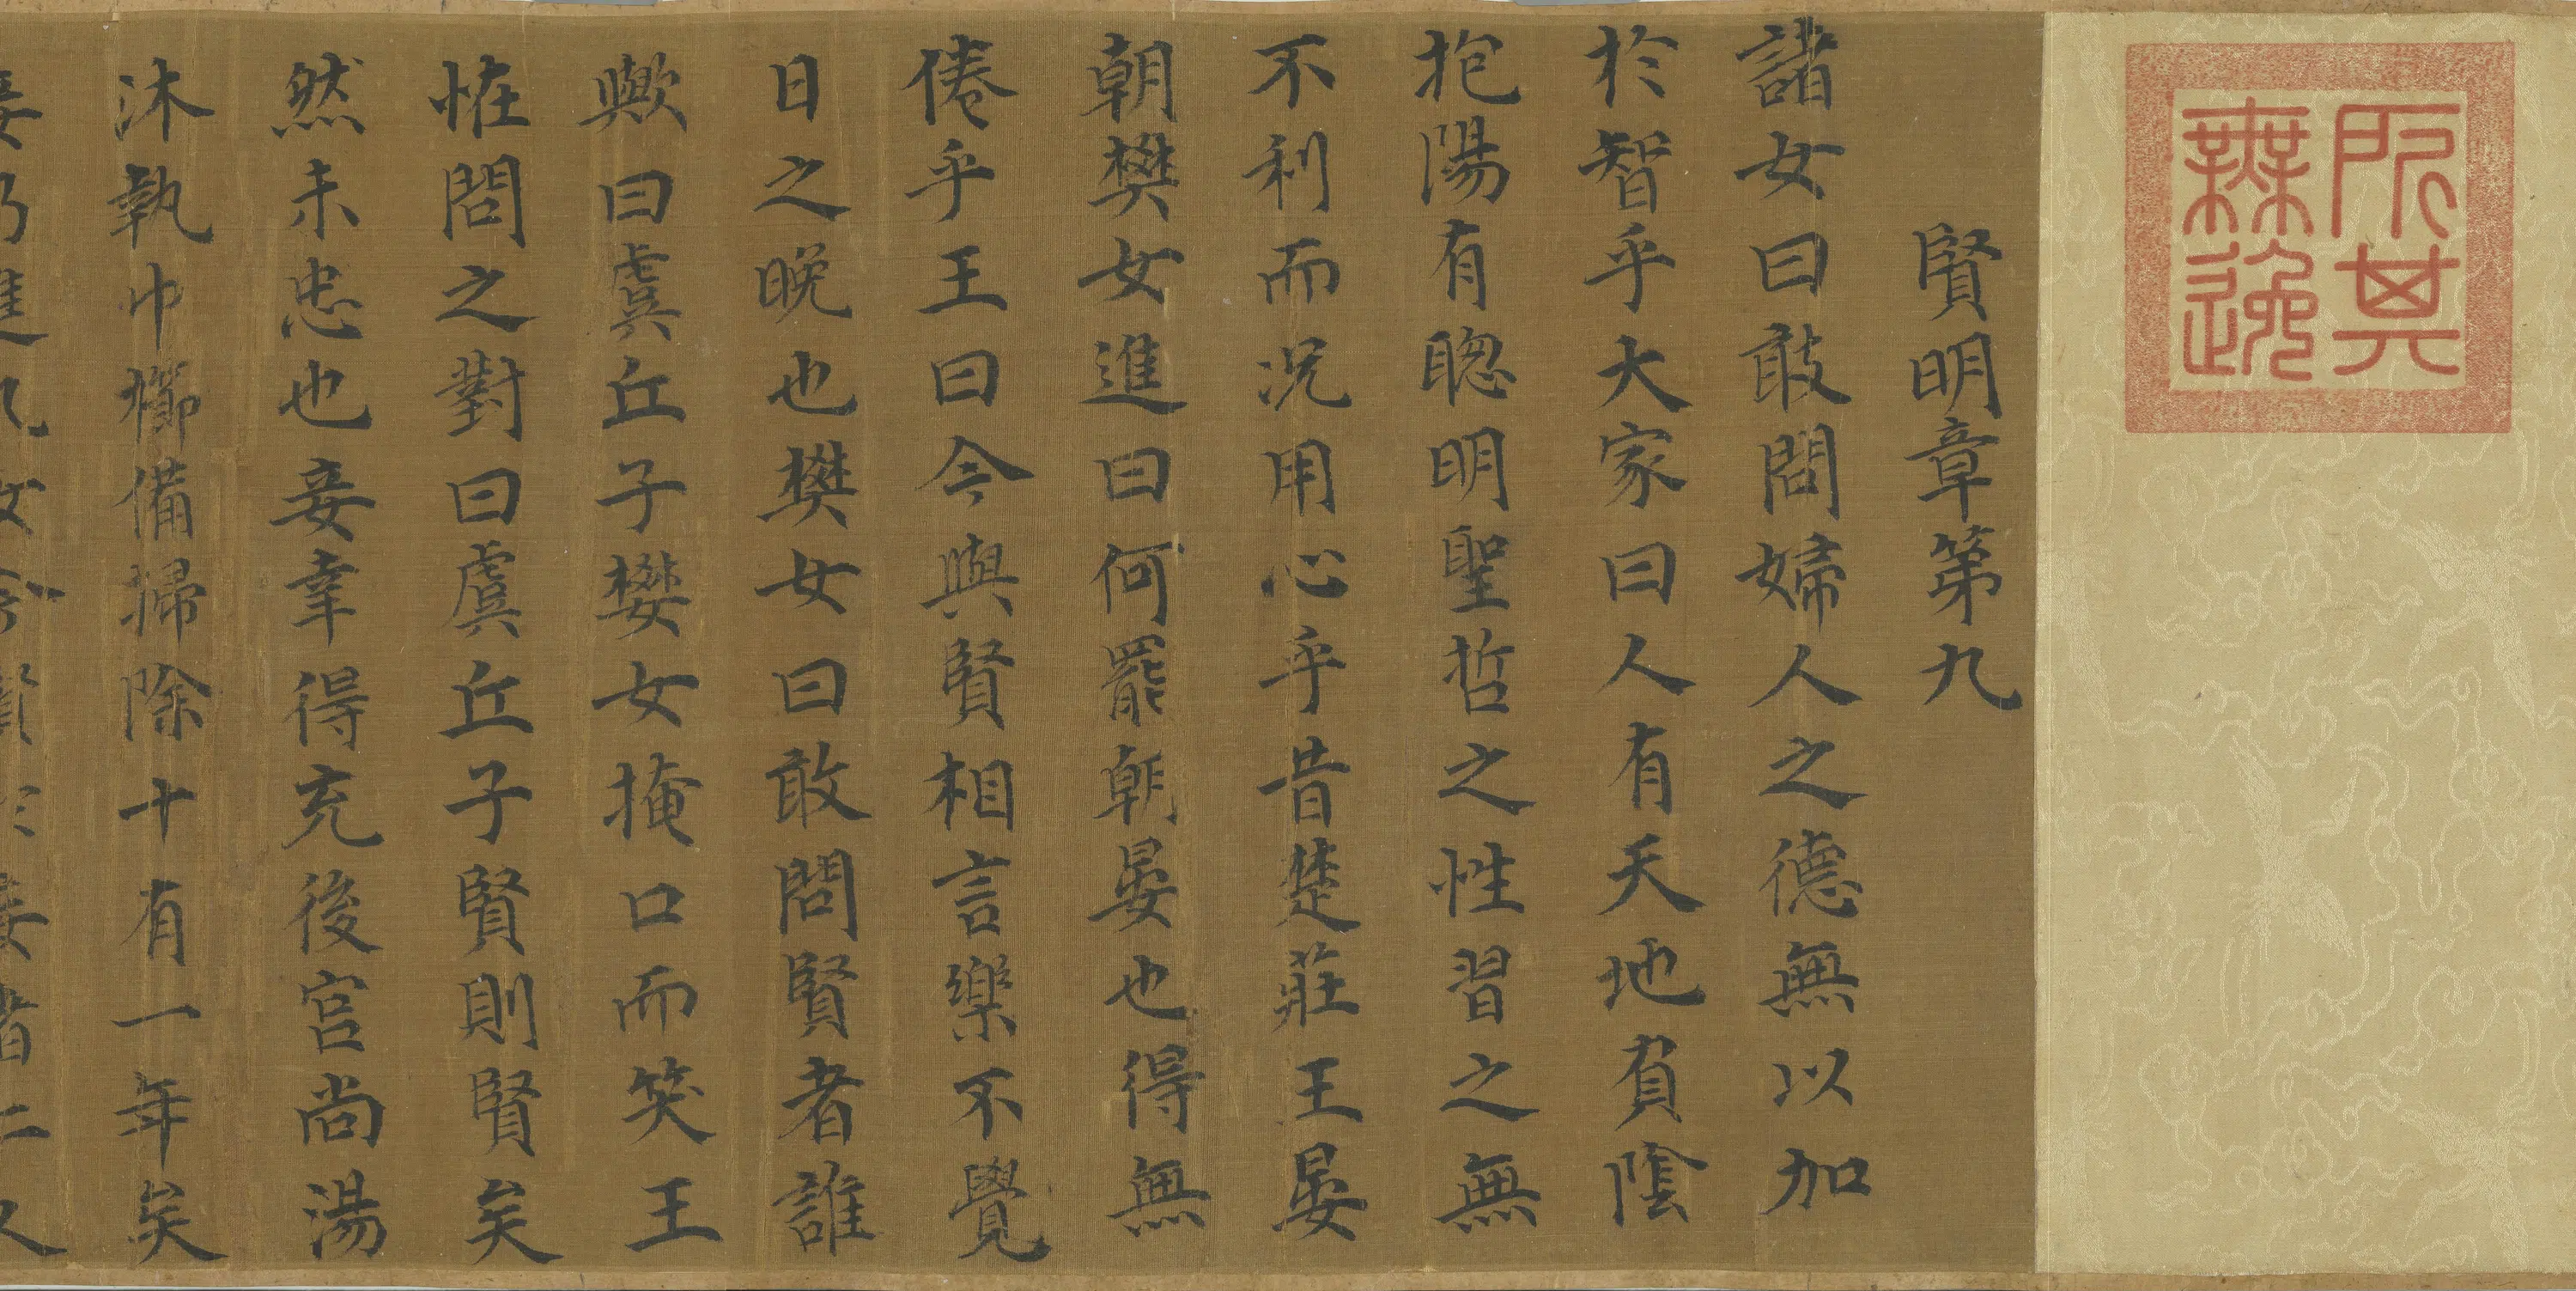 所其無逸
賢明章第九
諸女曰敢問婦人之德無以加
於智乎大家曰人有天地負陰
抱陽有聦明聖哲之性習之無
不利而况用心乎昔楚莊王晏
朝樊女進曰何罷朝晏也得無
倦乎王曰今與賢相言樂不覺
日之晚也樊女曰敢問賢者誰
歟曰虞丘子樊女掩口而笑王
恠問之對曰虞丘子賢則賢矣
然未忠也妾幸得充後宮尚湯
沐執巾櫛備掃除十有一年矣
妾乃進九女今賢於妾者二人